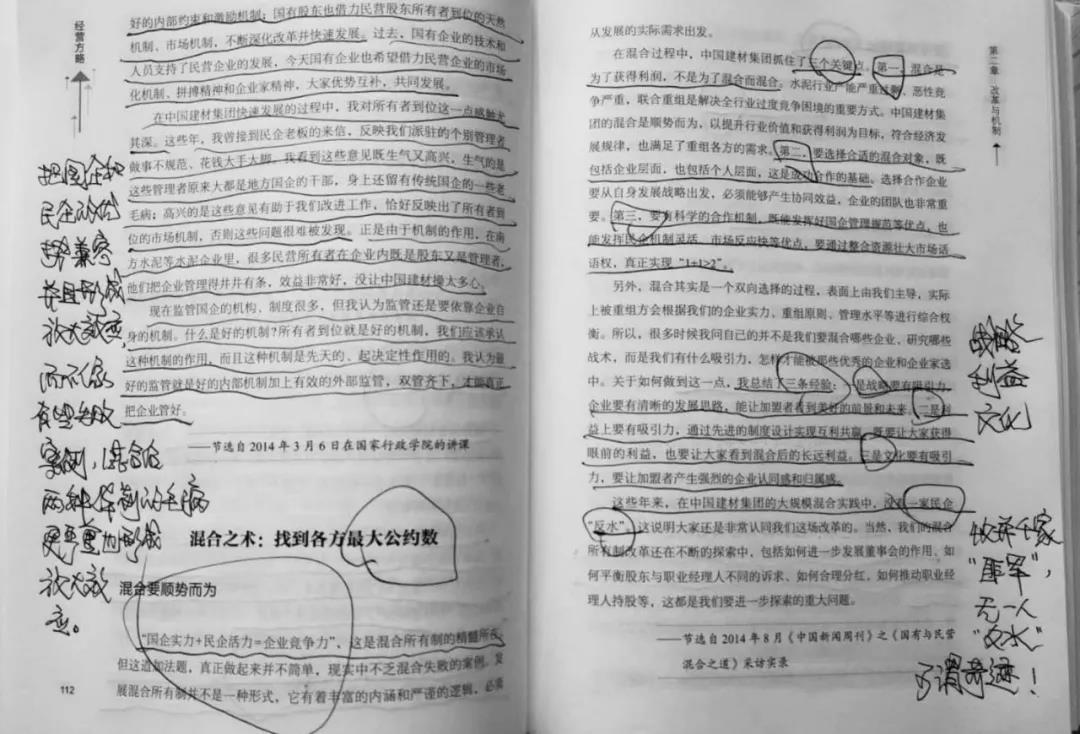 经营方略
好的内部约束和激励机制；国有股东也借力民营股东所有者到位的天然
机制、市场机制，不断深化改革并快速发展。过去，国有企业的技术和
人员支持了民营企业的发展，今天国有企业也希望借力民营企业的市场
化机制、拼搏精神和企业家精神，大家优势互补，共同发展。
在中国建材集团快速发展的过程中，我对所有者到位这一点感触尤
其深。这些年，我曾接到民企老板的来信，反映我们派驻的个别管理者
做事不规范、花钱大手大脚。我看到这些意见既生气又高兴，生气的是
这些管理者原来大都是地方国企的干部，身上还留有传统国企的一些老
毛病；高兴的是这些意见有助于我们改进工作，恰好反映出了所有者到
位的市场机制，否则这些问题很难被发现。正是由于机制的作用，在南
方水泥等水泥企业里，很多民营所有者在企业内既是股东又是管理者，
他们把企业管理得井井有条，效益非常好，没让中国建材操太多心。
现在监管国企的机构、制度很多，但我认为监管还是要依靠企业自
身的机制。什么是好的机制？所有者到位就是好的机制，我们应该承认
这种机制的作用，而且这种机制是先天的、起决定性作用的。我认为最
好的监管就是好的内部机制加上有效的外部监管，双管齐下，才能真正
把企业管好。
——节选自 2014 年 3 月 6 日在国家行政学院的讲课
混合之术：找到各方最大公约数
混合要顺势而为
“国企实力+民企活力=企业竞争力”，这是混合所有制的精髓所在，
但这道加法题，真正做起来并不简单，现实中不乏混合失败的案例。发
展混合所有制并不是一种形式，它有着丰富的内涵和严谨的逻辑，必须
112
把国企和
民企的优
势兼容
并且形成
放大效应，
而不像
有些失败
案例，混合后
两种体制的毛病
更严重的形成
放大效
应。
第二章 改革与机制
从发展的实际需求出发。
在混合过程中，中国建材集团抓住了三个关键点。第一，混合是
为了获得利润，不是为了混合而混合。水泥行业产能严重过剩、恶性竞
争严重，联合重组是解决全行业过度竞争困境的重要方式。中国建材集
团的混合是顺势而为，以提升行业价值和获得利润为目标，符合经济发
展规律，也满足了重组各方的需求。第二，要选择合适的混合对象，既
包括企业层面，也包括个人层面，这是成功合作的基础。选择合作企业
要从自身发展战略出发，必须能够产生协同效益，企业的团队也非常重
要。第三，要有科学的合作机制，既能发挥好国企管理规范等优点，也
能发挥民企机制灵活、市场反应快等优点，要通过整合资源壮大市场话
语权，真正实现“1+1>2”。
另外，混合其实是一个双向选择的过程，表面上由我们主导，实际
上被重组方会根据我们的企业实力、重组原则、管理水平等进行综合权
衡。所以，很多时候我问自己的并不是我们要混合哪些企业、研究哪些
战术，而是我们有什么吸引力，怎样才能被那些优秀的企业和企业家选
中。关于如何做到这一点，我总结了三条经验：一是战略要有吸引力，
企业要有清晰的发展思路，能让加盟者看到美好的前景和未来。二是利
益上要有吸引力，通过先进的制度设计实现互利共赢，既要让大家获得
眼前的利益，也要让大家看到混合后的长远利益。三是文化要有吸引
力，要让加盟者产生强烈的企业认同感和归属感。
这些年来，在中国建材集团的大规模混合实践中，没有一家民企
“反水”，这说明大家还是非常认同我们这场改革的。当然，我们的混合
所有制改革还在不断的探索中，包括如何进一步发展董事会的作用、如
何平衡股东与职业经理人不同的诉求、如何合理分红、如何推动职业经
理人持股等，这都是我们要进一步探索的重大问题。
——节选自 2014 年 8 月《中国新闻周刊》之《国有与民营
混合之道》采访实录
战略
利益
文化
收并千家
无一人
“反水”
可谓奇迹！